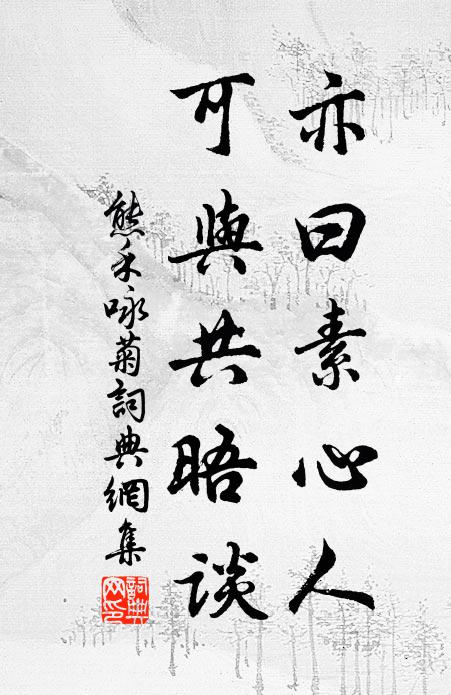 亦曰素心人
可與共晤談
熊禾咏菊詞典網集
詞典
网印